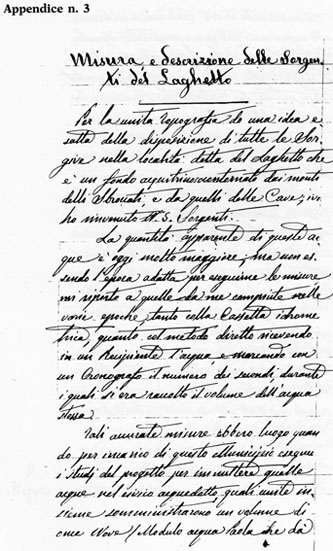 Appendice n. 3
Misura e descrizione delle Sorgen-
ti del Laghetto
Per la unita topografia do una idea e-
satta della disposizione di tutte le Sor-
give nella località detta del Laghetto che
è un fondo acquitrinoso contornato dai monti
delli Sbrovati, e da quelli delle Cave; ivi
ho rinvenuto N. 5. Sorgenti.
La quantità apparente di queste ac-
que è oggi molto maggiore; ma non es-
sendo l'epoca adatta per eseguirne le misure
mi riporto a quelle da me compiute nelle
varie epoche, tanto colla Cassetta idrome-
trica, quanto col metodo diretto ricevendo
in un Recipiente l'acqua e marcando con
un Cronografo il numero dei secondi, durante
i quali si era raccolto il volume dell'acqua
stessa.
Tali accurate misure ebbero luogo quan-
do, per incarico di questo Municipio eseguii
i Studi del progetto per immettere quelle
acque nel civico acquedotto, quali unite in-
sieme somministrarono un volume di
oncie Nove (Modulo acqua Paola che dà